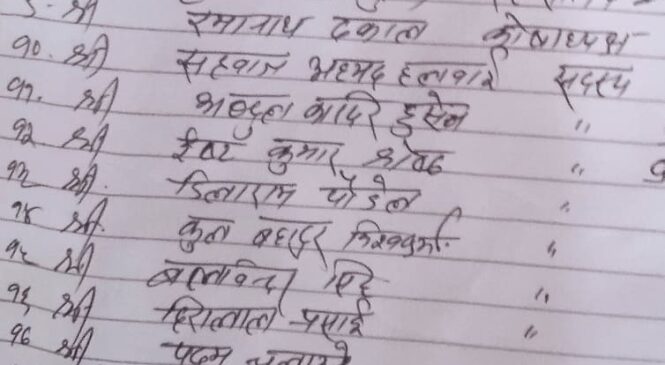 ९. श्री रमानाथ ढकाल कोषाध्यक्ष
१०. श्री अहमद हलवाई सदस्य
११. श्री अब्दुल कादिर हुसेन "
१२ श्री ईश्वर कुमार श्रेष्ठ "
१३ श्री. डिलाराम पौडेल "
१४ श्री. कुल बहादुर विश्वकर्मा "
१५ श्री "
१६ श्री हिरालाल प्रसाई "
१७ श्री पदम